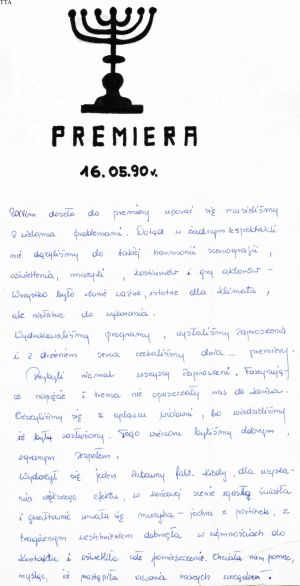 TTA
PREMIERA
16.05.90r.
Zanim doszło do premiery uporać się musieliśmy
z wieloma problemami. Dotąd w żadnym ze spektakli
nie dążyliśmy do takiej harmonii scenografii,
oświetlenia, muzyki, kostiumów i gry aktorów –
Wszystko było równie ważne, istotne dla klimatu,
ale niełatwe do wykonania.
Wydrukowaliśmy programy, wysłaliśmy zaproszenia
i z drżeniem serca czekaliśmy dnia ... premiery.
Przybyli niemal wszyscy zaproszeni. Fascynują-
ce napięcie i trema nie opuszczały nas do końca.
Cieszyliśmy się z aplauzu widowni, bo wiedzieliśmy
iż były zasłużony. Tego wieczoru byliśmy dobrym,
zgranym zespołem.
Wydarzył się jeden zabawny fakt. Kiedy dla uzyska-
nia większego efektu, w końcowej scenie zgasły światła
i gwałtownie urwała się muzyka – jedna z portierek, z
tragicznym westchnieniem dobrnęła w ciemnościach do
kontaktu i oświetliła całe pomieszczenie. Chciała nam pomóc,
myśląc, iż nastąpiła awaria naszych urządzeń.